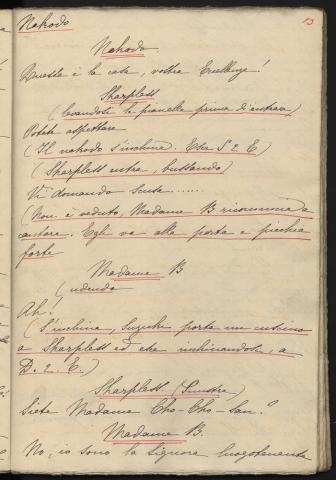 Nakodo
13
Nakodo
Questa è la casa, vostra Eccellenza!
Sharpless
(levandosi le pianelle prima di entrare)
Potete aspettare
(Il nakodo s'inchina. Esce S 2 E)
(Sharpless entra, bussando)
Vi domando scusa ......
(Non è veduto, Madame B ricomincia a
cantare. Egli va alla porta e picchia
forte
Madame B
(udendo
Ah!
(S'inchina, Suzuki porta un cuscino
a Sharpless ed esce inchinandosi, a
D. 2. E.)
Sharpless (Sinistra)
Siete Madame Cho-Cho-San?
Madame B.
No, io sono la Signora luogotenente